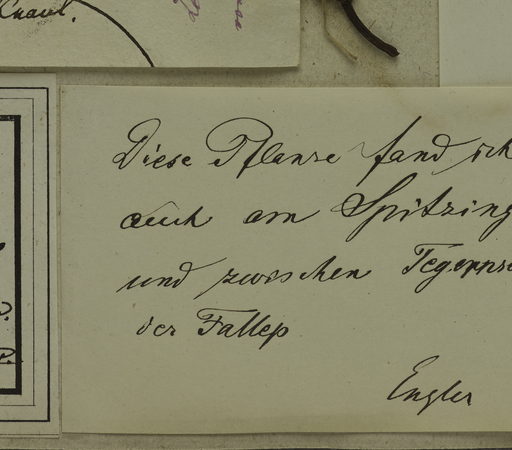 Knaul.
Diese Pflanze fand ich
auch am Spitzing
und zwischen Tegernse
der Fallep
Engler